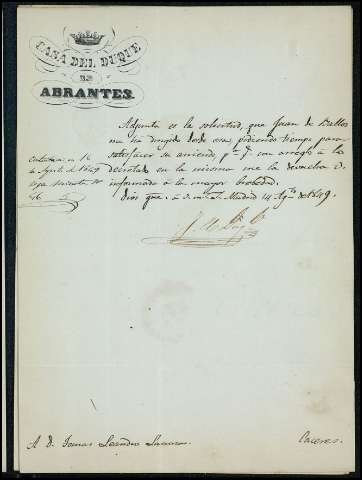 CASA DEL DUQUE
DE
ABRANTES.
Adjunta es la solicitud, que Juan de
me ha dirigido desde esa pidiendo tiempo para
satisfacer su arriendo, pª q. con arreglo a lo
decretado en la misma me la devuelva V.
informada á la mayor brevedad.
Dios gue. á V. m. a. Madrid 14 Agto de 1849.
Contestada en 16
de Agosto de 1849
46
A D. Tomas Leandro
Caceres.